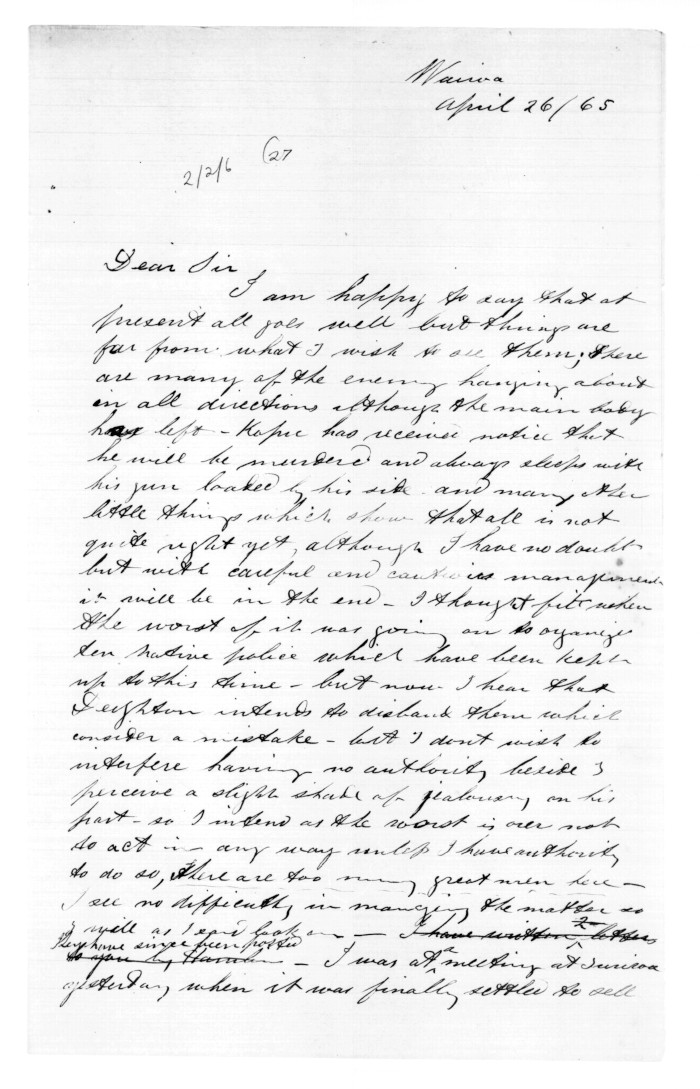 Wairoa
April 26/65
2/2/6 (27
Dear Sir
I am happy to say that at
present all goes well but things are
far from what I wish to see them; there
are many of the enemy hanging about
in all directions although the main body
has left - Kopu has received notice that
he will be murdered and always sleeps with
his gun loaded by his side and many other
little things which show that all is not
quite right yet, although I have no doubt
but with careful and cautious management
it will be in the end - I thought fit when
the worst of it was going on to organize
ten native police which have been kept
up to this time - but now I hear that
Deighton intends to disband them which
consider a mistake - but I dont wish to
interfere having no authority beside I
perceive a slight shade of jealousy on his
part - so I intend as the worst is over not
to act in any way unless I have authority
to do so, there are too many great men here -
I see no difficulty in managing the matter so
I will as I said look on - I have written 2 letters
They have since been posted
to you by - I was at a meeting at Turiroa
yesterday when it was finally settled to sell